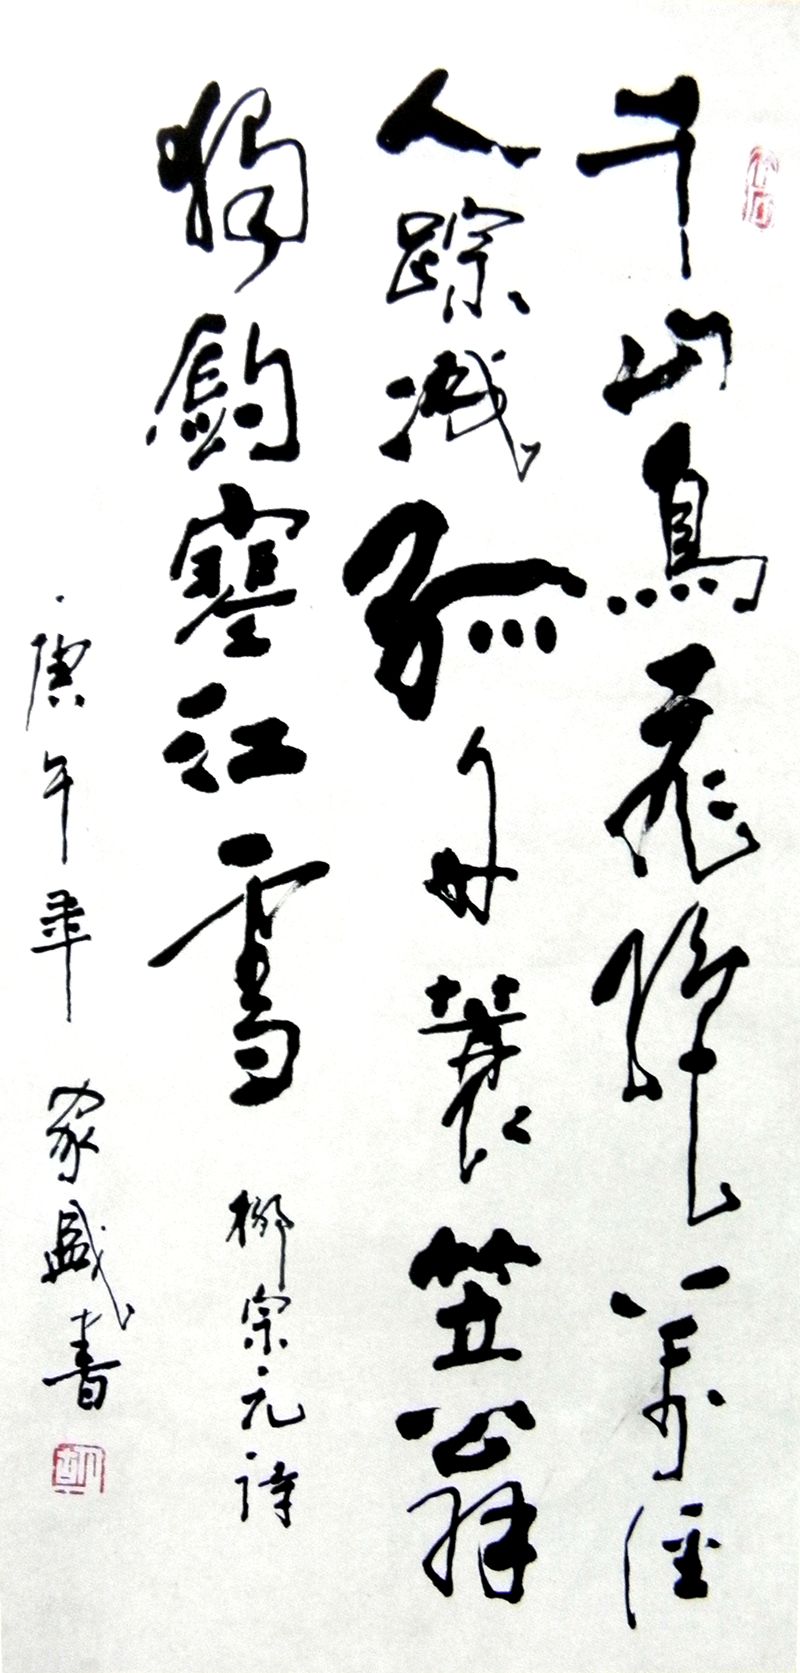 千山鳥飛絶萬徑
人踪滅孤舟蓑笠翁
獨釣寒江雪
柳宗元詩
庚午年 家盛書